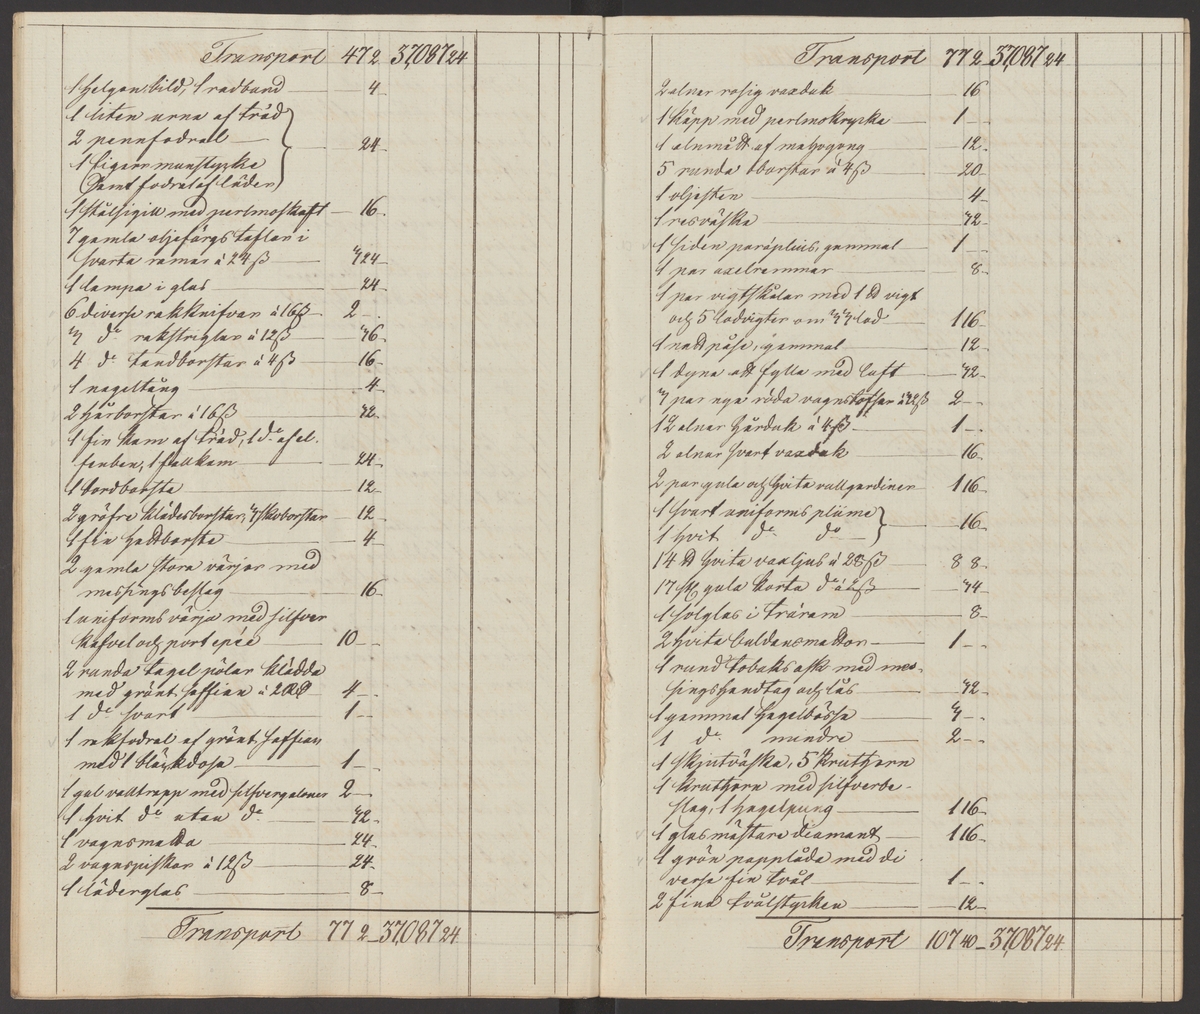 Transport 47 2 37,087 24
1 helgon, bild, 1 radband 4
1 liten urna af träd
2 pennfodral 24
1 sigarr munstycke
(samt fodral af läder)
1 stålsigill med perlmoskaft 16
7 gamla oljefärgs taflor i
svarta ramar à 24 ß 3 24
1 lampa i glas 24
6 diverse rakknifvar à 16 ß 2
3 do rakstriglar à 12 ß 36
4 do tandborstar à 4 ß 16
1 nageltång 4
2 hårborstar à 16 ß 32
1 fin kam af träd, 1 do af el-
fenben, 1 fällkam 24
1 bordborste 12
2 gröfre klädesborstar, 3 skoborstar 12
1 fin hattborste 4
2 gamla stora värjor med
messingsbeslag 16
1 uniforms värja med silfver
kafvel och portepée 10
2 runda tagel pölar klädda
med grönt saffian à 2 RD 4
1 do svart 1
1 rakfodral af grönt saffian
med 1 bläckdosa 1
1 gul valltrapp med silfvergaloner 2
1 hvit do utan do 32
1 vagnsmatta 24
2 vagnspiskor à 12 ß 24
1 läderglas 8
Transport 77 2 37,087 24
Transport 77 2 37,087 24
2 alnar rosig vaxduk 16
1 käpp med perlmokrycka 1
1 alnmått af mahogony 12
5 runda borstar à 4 ß 20
1 oljesten 4
1 resväska 32
1 siden paraplui, gammal 1
1 par axelremmar 8
1 par vigtskålar med 1 ℔ vigt
och 5 lodvigter om 33 lod 1 16
1 nattpåse, gammal 12
1 dyna att fylla med luft 32
3 par nya röda vagnstofflor à 32 ß 2
12 alnar hårduk à 4 ß 1
2 alnar svart vaxduk 16
2 par gula och hvita rullgardiner 1 16
1 svart uniforms plüme
1 hvit do do 16
14 ℔ hvita vaxljus à 28 ß 8 8
17 st gula korta do à 2 ß 34
1 solglas i träram 8
2 hvita buldansmattor 1
1 rund tobaksask med mes-
singshandtag och lås 32
1 gammal hagelbössa 3
1 do mindre 2
1 skjutväska, 5 kruthorn
1 kruthorn med silfverbe-
slag, 1 hagelpung 1 16
1 glasmästare diamant 1 16
1 grön papplåda med di
verse fin tvål 1
2 fina tvålstycken 12
Transport 107 40 37,087 24